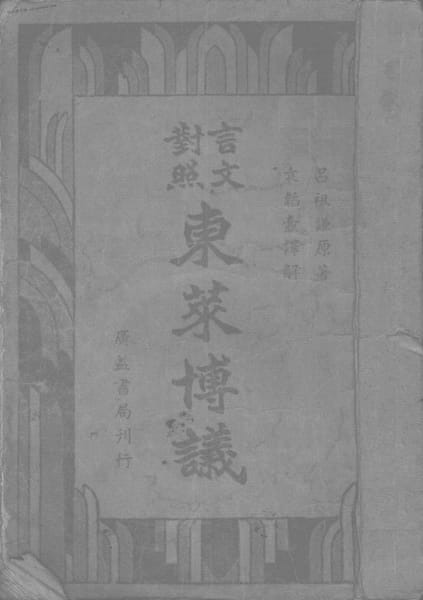 呂祖謙原著
袁韜壺譯解
言文
對照
東萊博議
廣益書局刊行